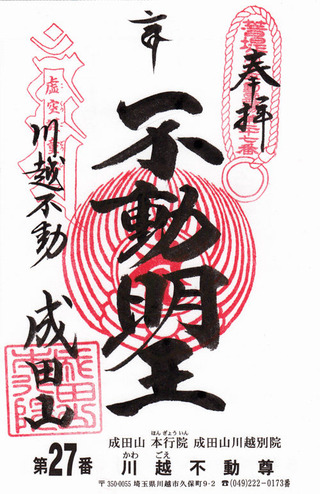 奉拝
不動明王
川越不動
成田山
成田山 本行院 成田山川越別院
ほんぎょういん
川越不動尊
かわ ごえ
第27番
〒350-0055 埼玉県川越市久保町9-2 ☎(049)222-0173番